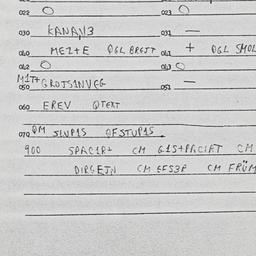 022 O 023 O
030 KANAN3 031 —
040 MEZ+E OGL BREJT 041 + OGL SMOL
042 O 043 O
050 051 —
060 EREV QTEXT
070 QM SLUP1S QFSTUP1S
900 SPAC1R+ CM G1S+PACIRT CM
DIRGEJN CM EFS3R CM FRÜM